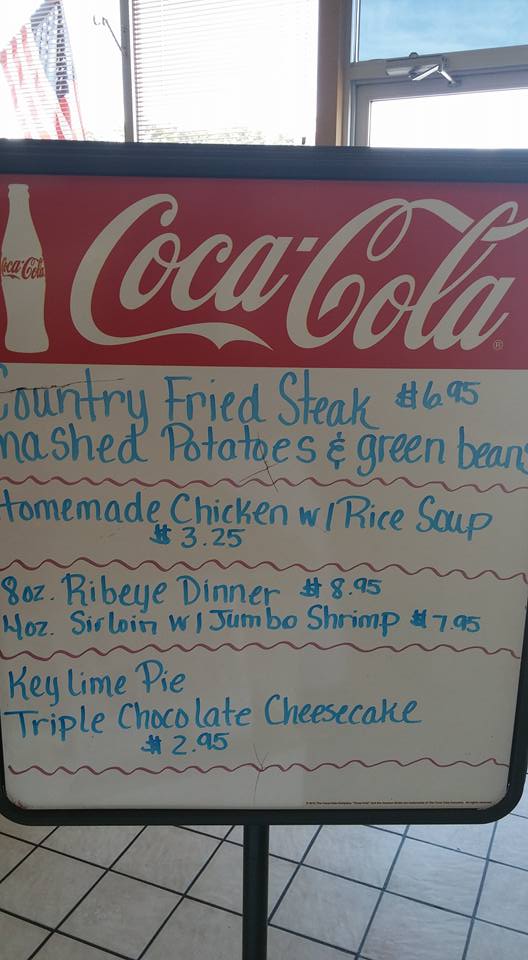 Coca-Cola
Coca-Cola®
Country Fried Steak $6.95
mashed Potatoes & green beans
Homemade Chicken w/Rice Soup
$3.25
8oz. Ribeye Dinner $8.95
4oz. Sirloin w/Jumbo Shrimp $7.95
Key lime Pie
Triple Chocolate Cheesecake
$2.95